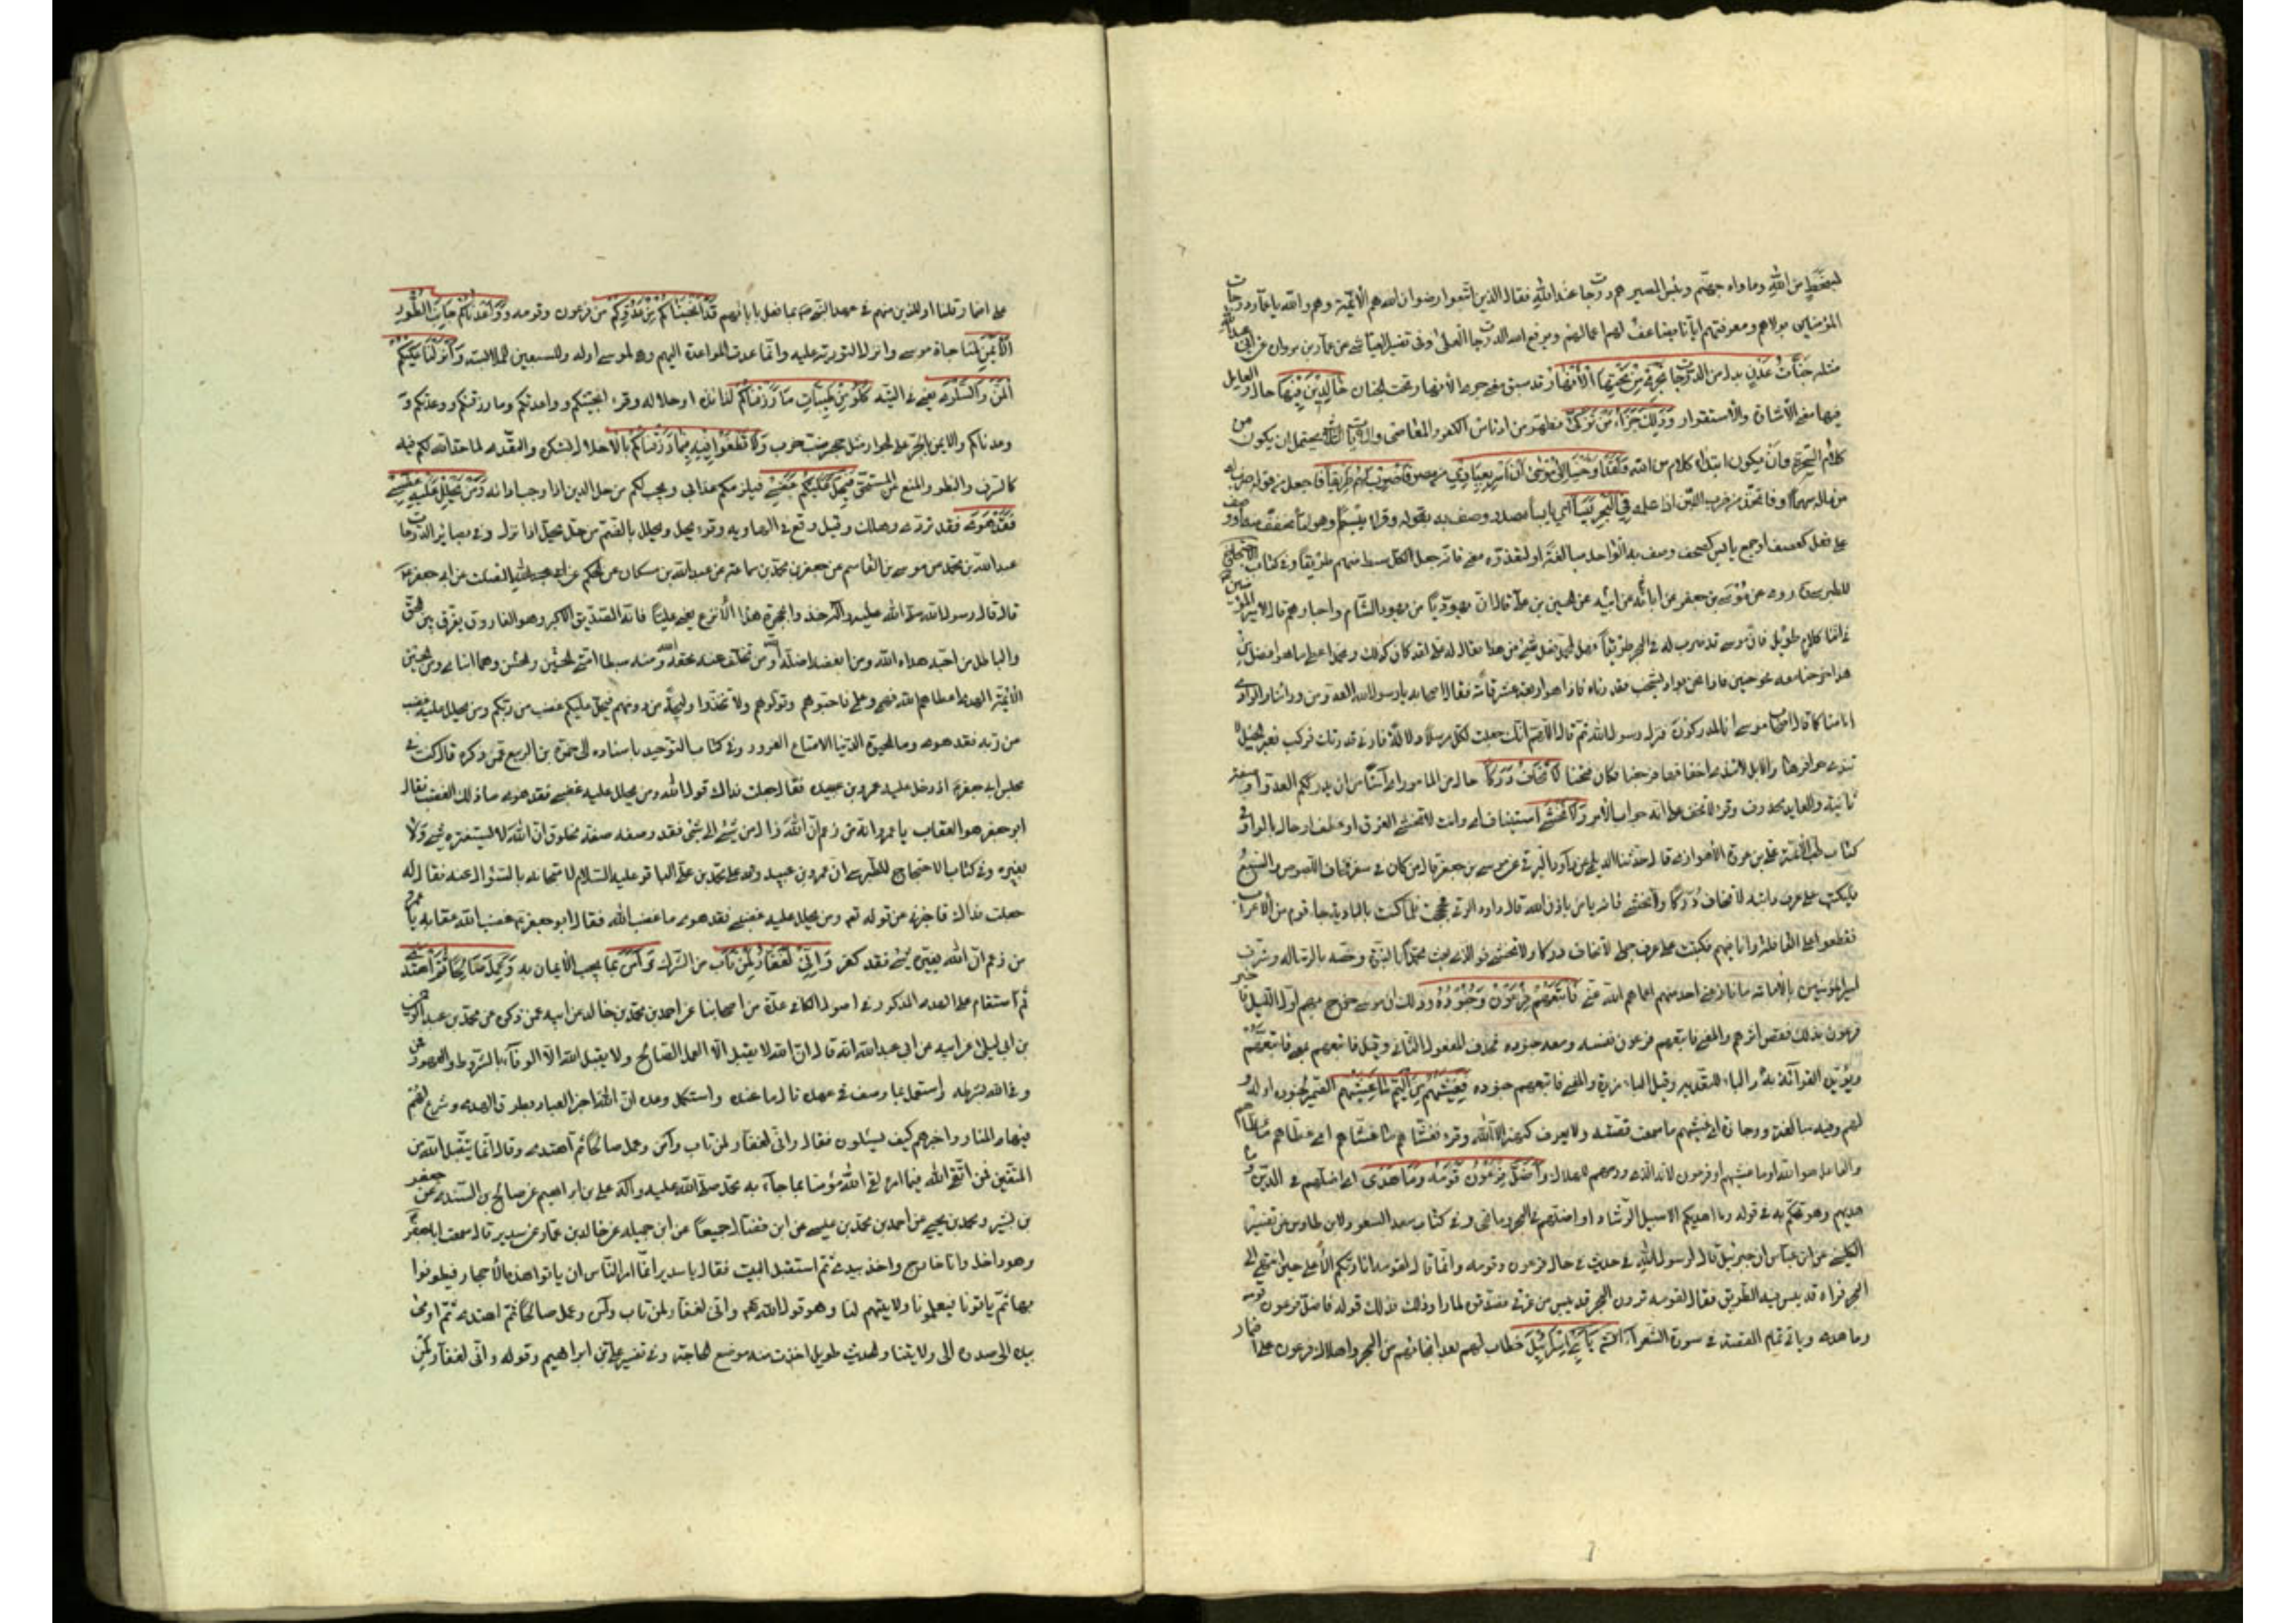 لبسخط من الله وماواه جهنم وبئس المصير هم درجات عند الله فقال الذين اتبعوا رضوان الله هم الائمة وهم والله يا عمار درجات
المؤمنين بولايتهم ومعرفتهم ايانا يضاعف لهم اعمالهم ويرفع الله الدرجات العلى وفي تفسير العياشي عن عمار بن مروان عن ابي عبد الله
مثله جَنَّاتُ عَدْنٍ بدل من الدرجات تَجْرِي مِنْ تَحْتِهَا الْأَنْهَارُ قد سبق معنى جري الانهار وتحت الجنان خَالِدِينَ فِيهَا حال والعامل
فيها معنى الاشارة والاستقرار وَذَلِكَ جَزَاءُ مَنْ تَزَكَّى تطهر من ادناس الكفر والمعاصي والايات الثلاث يحتمل ان يكون من
كلام السحرة وان يكون ابتداء كلام من الله وَلَقَدْ أَوْحَيْنَا إِلَى مُوسَى أَنْ أَسْرِ بِعِبَادِي من مصر فَاضْرِبْ لَهُمْ طَرِيقًا فاجعل من قولهم ضرب له
من ماله سهما او فاتخذ من ضرب اللبن اذا عمله فِي الْبَحْرِ يَبَسًا اي يابسا مصدر وصف به يقوله وقرء يبسا وهو اما مخفف منه او وصف
على فعل كصعب او جمع يابس كصحب وصف به الواحد مبالغة او لتعدده معنى فانه جعل لكل سبط منهم طريقا وفي كتاب الاحتجاج
للطبرسي روى عن موسى بن جعفر عن ابائه عن ابيه عن الحسين بن علي قال ان يهوديا من يهود الشام واحبارهم قال لامير المؤمنين
في اثناء كلام طويل فان موسى قد ضرب له في البحر طريقا فهل لمحمد فعل شيء من هذا فقال له علي لقد كان كذلك ومحمد اعطي ما هو افضل من
هذا خرجنا معه الى حنين فاذا نحن بواد يشخب فقدرناه فاذا هو اربع عشر قامة فقالوا يا رسول الله العدو من ورائنا والوادي
امامنا كما قال اصحاب موسى انا لمدركون فنزل رسول الله ثم قال اللهم انك جعلت لكل مرسل دلالة فارني قدرتك فركب فعبر الخيل لا
تندى حوافرها والابل لا تندى اخفافها فرجعنا فكان فتحنا لَا تَخَافُ دَرَكًا حال من المامور اي آمنا من ان يدرككم العدو او صفة
ثانية والعايد محذوف وقرء لا تخف على انه جواب الامر وَلَا تَخْشَى استيناف اي وانت لا تخشى الغرق او عطف او حال بالواو في
كتاب طب الائمة علي بن عروة الاهوازي قال حدثنا الديلمي عن داود الرقي عن موسى بن جعفر قال من كان في سفر فخاف اللصوص والسبع
فليكتب على عرف دابته لا تخاف دركا ولا تخشى فانه يامن باذن الله قال داود الرقي فحججت فلما كنت بالبادية جاء قوم من الاعراب
فقطعوا على القافلة وانا فيهم فكتبت على عرف جملي لا تخاف دركا ولا تخشى فوالذي بعث محمدا بالنبوة وخصه بالرسالة وشرف
امير المؤمنين بالامامة ما نازعني احد منهم اعماهم الله عني فَأَتْبَعَهُمْ فِرْعَوْنُ بِجُنُودِهِ وذلك ان موسى خرج بهم اول الليل فاخبر
فرعون بذلك فقص اثرهم والمعنى فاتبعهم فرعون نفسه ومعه جنوده فحذف المفعول الثاني وقيل فاتبعهم بمعنى فاتبعهم
ويؤيده القراءة به والباء للتعدية وقيل الباء مزيدة والمعنى فاتبعهم جنوده فَغَشِيَهُمْ مِنَ الْيَمِّ مَا غَشِيَهُمْ الضمير لجنوده او له و
لهم وفيه مبالغة ووجازة اي غشيهم ما سمعت قصته ولا يعرف كنهه الا الله وقرء فغشاهم ما غشاهم اي غطاهم ما غطاهم
والفاعل هو الله او ما غشيهم او فرعون لانه الذي ورطهم للهلاك وَأَضَلَّ فِرْعَوْنُ قَوْمَهُ وَمَا هَدَى اي اضلهم في الدين وما
هديهم وهو تهكم به في قوله وما اهديكم الا سبيل الرشاد او اضلهم في البحر وما نجى وفي كتاب سعد السعود لابن طاوس من تفسير
الكلبي عن ابن عباس ان جبرئيل قال لرسول الله في حديث في حال فرعون وقومه وانما قال لقومه انا ربكم الاعلى حين انتهى الى
البحر فراه قد يبس فيه الطريق فقال لقومه ترون البحر قد يبس من فرقي فصدقوه لما راوا ذلك فذلك قوله فاضل فرعون قومه
وما هدى وياتي تمام القصة في سورة الشعراء يَا بَنِي إِسْرَائِيلَ خطاب لهم بعد انجائهم من البحر واهلاك فرعون على اضمار
على اضمار قلنا او للذين منهم في عهد النبي بما فعل بابائهم قَدْ أَنْجَيْنَاكُمْ مِنْ عَدُوِّكُمْ من فرعون وقومه وَوَاعَدْنَاكُمْ جَانِبَ الطُّورِ
الْأَيْمَنَ لمناجاة موسى وانزال التورية عليه وانما عدى المواعدة اليهم وهي لموسى او له وللسبعين للملابسة وَأَنْزَلْنَا عَلَيْكُمُ
الْمَنَّ وَالسَّلْوَى يعني في التيه كُلُوا مِنْ طَيِّبَاتِ مَا رَزَقْنَاكُمْ لذائذه او حلاله وقرء انجيتكم وواعدتكم وما رزقتكم ووعدتكم و
وعدناكم والايمن بالجر على الجوار مثل جحر ضب خرب وَلَا تَطْغَوْا فِيهِ فيما رزقناكم بالاخلال بالشكر والتعدي لما حد الله لكم فيه
كالسرف والبطر والمنع لمن المستحق فَيَحِلَّ عَلَيْكُمْ غَضَبِي فيلزمكم عذابي ويجب لكم من حل الدين اذا وجب اداؤه وَمَنْ يَحْلِلْ عَلَيْهِ غَضَبِي
فَقَدْ هَوَى فقد تردى وهلك وقيل وقع في الهاوية وقرء يحل ويحلل بالضم من حل يحل اذا نزل وفي بصائر الدرجات
عبد الله بن محمد عن موسى بن القاسم عن جعفر بن محمد بن سماعة عن عبد الله بن مسكان عن الحكم عن ابي جعفر
قال قال رسول الله صلى الله عليه وآله خذوا بحجزة هذا الانزع يعني عليا فانه الصديق الاكبر وهو الفاروق يفرق بين الحق
والباطل من احبه هداه الله ومن ابغضه اضله الله ومن تخلف عنه محقه الله ومنه سبطا امتي الحسن والحسين وهما ابناي ومن الحسين
الائمة الهداة اعطاهم الله فهمي وعلمي فاحبوهم وتولوهم ولا تتخذوا وليجة من دونهم فيحل عليكم غضب من ربكم ومن يحلل عليه غضب
من ربه فقد هوى وما الحيوة الدنيا الا متاع الغرور وفي كتاب التوحيد باسناده الى حمزة بن الربيع عمن ذكره قال كنت في
مجلس ابي جعفر اذ دخل عليه عمرو بن عبيد فقال جعلت فداك قول الله ومن يحلل عليه غضبي فقد هوى ما ذلك الغضب فقال
ابو جعفر هو العقاب يا عمرو انه من زعم ان الله زال من شيء الى شيء فقد وصفه صفة مخلوق ان الله لا يستفزه شيء ولا
يغيره وفي كتاب الاحتجاج للطبرسي ان عمرو بن عبيد وفد على محمد بن علي الباقر عليه السلام لامتحانه بالسؤال عنه فقال له
جعلت فداك فاخبرني عن قوله تع ومن يحلل عليه غضبي فقد هوى ما غضب الله فقال ابو جعفر غضب الله عقابه يا عمرو
من زعم ان الله يغيره شيء فقد كفر وَإِنِّي لَغَفَّارٌ لِمَنْ تَابَ من الشرك وَآمَنَ بما يجب الايمان به وَعَمِلَ صَالِحًا ثُمَّ اهْتَدَى
ثم استقام على الهدى المذكور في اصول الكافي عدة من اصحابنا عن احمد بن محمد بن خالد عن ابيه عمن ذكره عن محمد بن عبد الرحمن
بن ابي ليلى عن ابيه عن ابي عبد الله انه قال ان الله لا يقبل الا العمل الصالح ولا يقبل الله الا الوفاء بالشروط والعهود فمن
وفى لله بشرطه واستعمل ما وصف في عهده نال ما عنده واستكمل وعده ان الله اخبر العباد بطرق الهدى وشرع لهم
فيها المنار واخبرهم كيف يسلكون فقال واني لغفار لمن تاب وآمن وعمل صالحا ثم اهتدى وقال انما يتقبل الله من
المتقين فمن اتقى الله فيما امره لقى الله مؤمنا بما جاء به محمد صلى الله عليه وآله علي بن ابراهيم عن صالح بن السندي عن جعفر
بن بشير ومحمد بن يحيى عن احمد بن محمد بن عيسى عن ابن فضال جميعا عن ابي جميلة عن خالد بن عمار عن سدير قال سمعت ابا جعفر
وهو داخل وانا خارج واخذ بيدي ثم استقبل البيت فقال يا سدير انما امر الناس ان ياتوا هذه الاحجار فيطوفوا
بها ثم ياتونا فيعلمونا ولايتهم لنا وهو قول الله واني لغفار لمن تاب وآمن وعمل صالحا ثم اهتدى ثم اومى
بيده الى صدره الى ولايتنا والحديث طويل اخذت منه موضع الحاجة وفي تفسير علي بن ابراهيم وقوله واني لغفار لمن